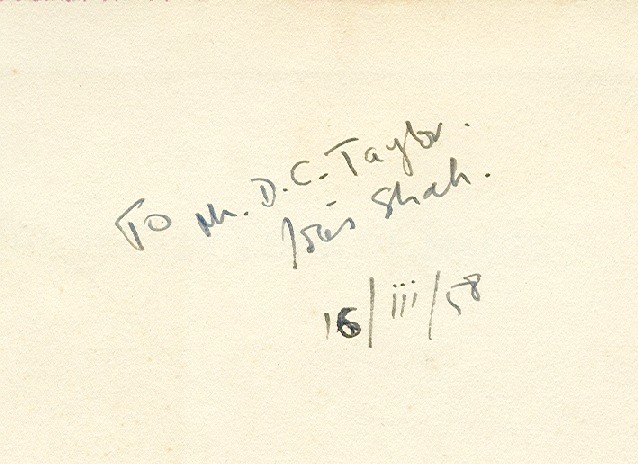 To Mr. D.C. Taylor.
Idries Shah.
16/iii/58